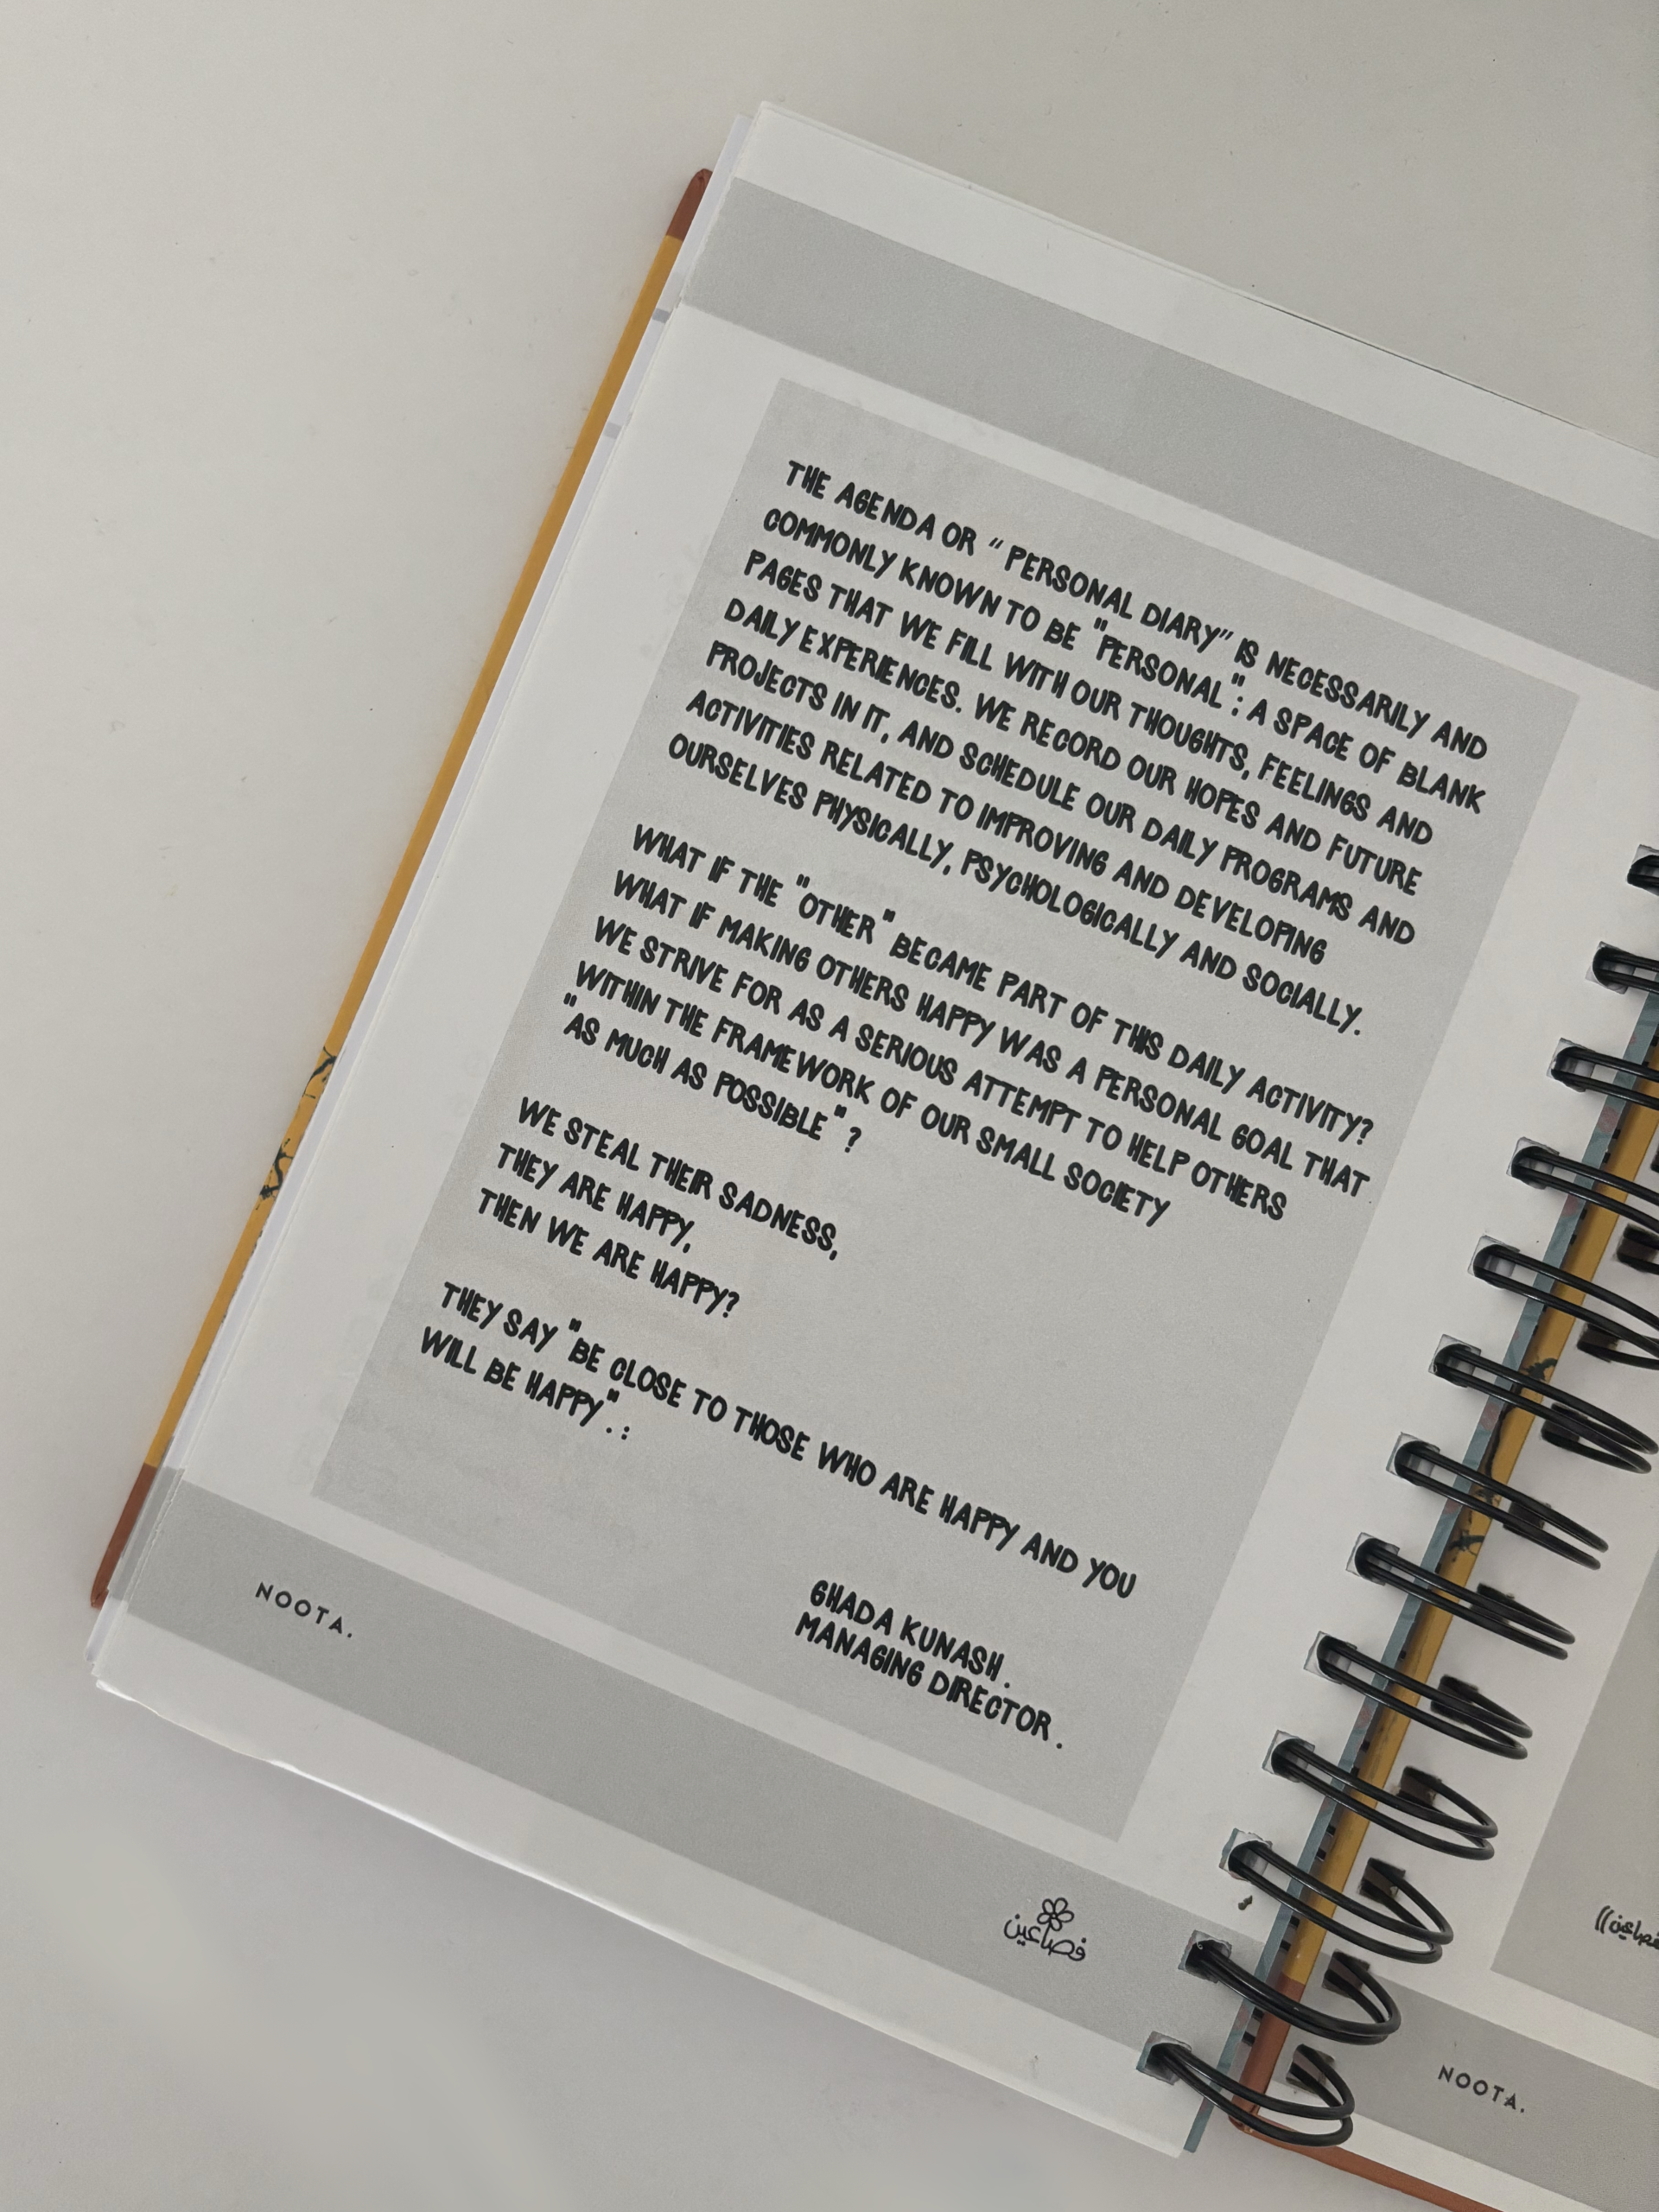 THE AGENDA OR “ PERSONAL DIARY” IS NECESSARILY AND
COMMONLY KNOWN TO BE "PERSONAL": A SPACE OF BLANK
PAGES THAT WE FILL WITH OUR THOUGHTS, FEELINGS AND
DAILY EXPERIENCES. WE RECORD OUR HOPES AND FUTURE
PROJECTS IN IT, AND SCHEDULE OUR DAILY PROGRAMS AND
ACTIVITIES RELATED TO IMPROVING AND DEVELOPING
OURSELVES PHYSICALLY, PSYCHOLOGICALLY AND SOCIALLY.
WHAT IF THE "OTHER" BECAME PART OF THIS DAILY ACTIVITY?
WHAT IF MAKING OTHERS HAPPY WAS A PERSONAL GOAL THAT
WE STRIVE FOR AS A SERIOUS ATTEMPT TO HELP OTHERS
WITHIN THE FRAMEWORK OF OUR SMALL SOCIETY
"AS MUCH AS POSSIBLE" ?
WE STEAL THEIR SADNESS,
THEY ARE HAPPY,
THEN WE ARE HAPPY?
THEY SAY "BE CLOSE TO THOSE WHO ARE HAPPY AND YOU
WILL BE HAPPY". :
GHADA KUNASH .
MANAGING DIRECTOR .
NOOTA.
فصاعين
NOOTA.